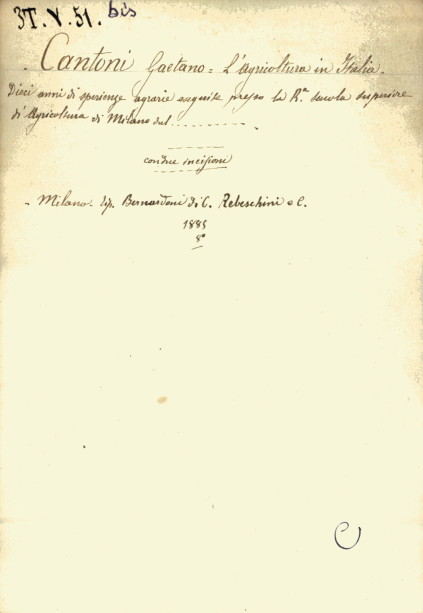 3T. V. 51. bis
Cantoni Gaetano = L'Agricoltura in Italia.
Dieci anni di sperienze agrarie eseguite presso la R.ª scuola superiore
di Agricoltura di Milano dal ...........
con due incisioni
- Milano. tip. Bernardoni di C. Rebeschini e C.
1885
8°
C